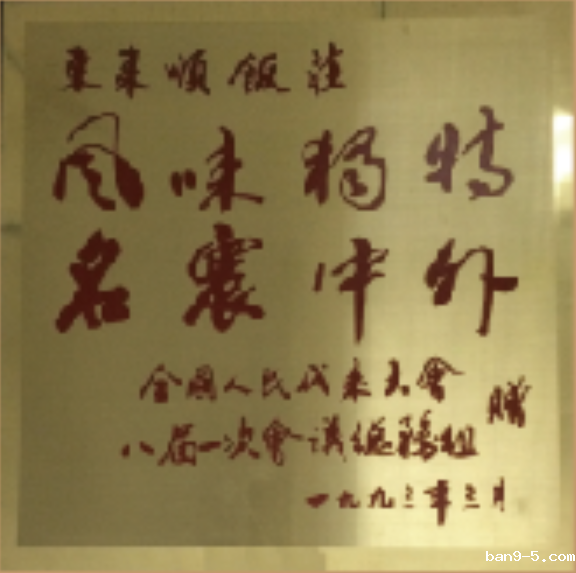 東來順飯莊
风味獨特
名震中外
全國人民代表大會
八届一次會議總務組
贈
一九九三年三月
ban9-5.com